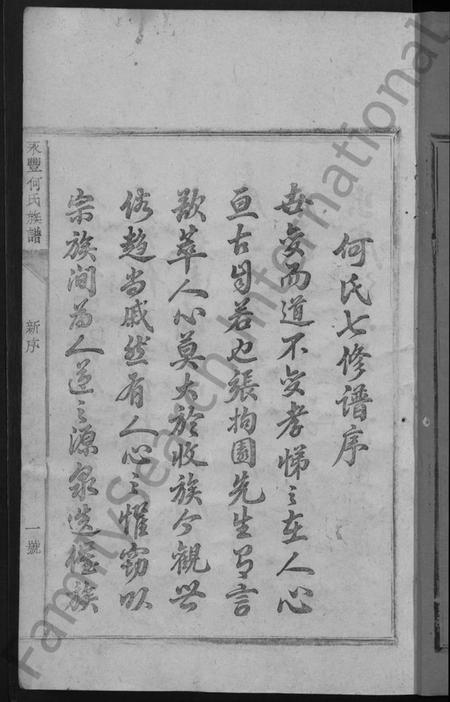 何氏七修譜序
世變而道不變孝悌之在人心
亘古自若也張拘園先生有言
欲萃人心莫大於收族今觀世
俗趨尚戚然有人心之懼竊以
宗族間為人道之源泉迭經族
永豐何氏族譜
新序
一號
FamilySearch International